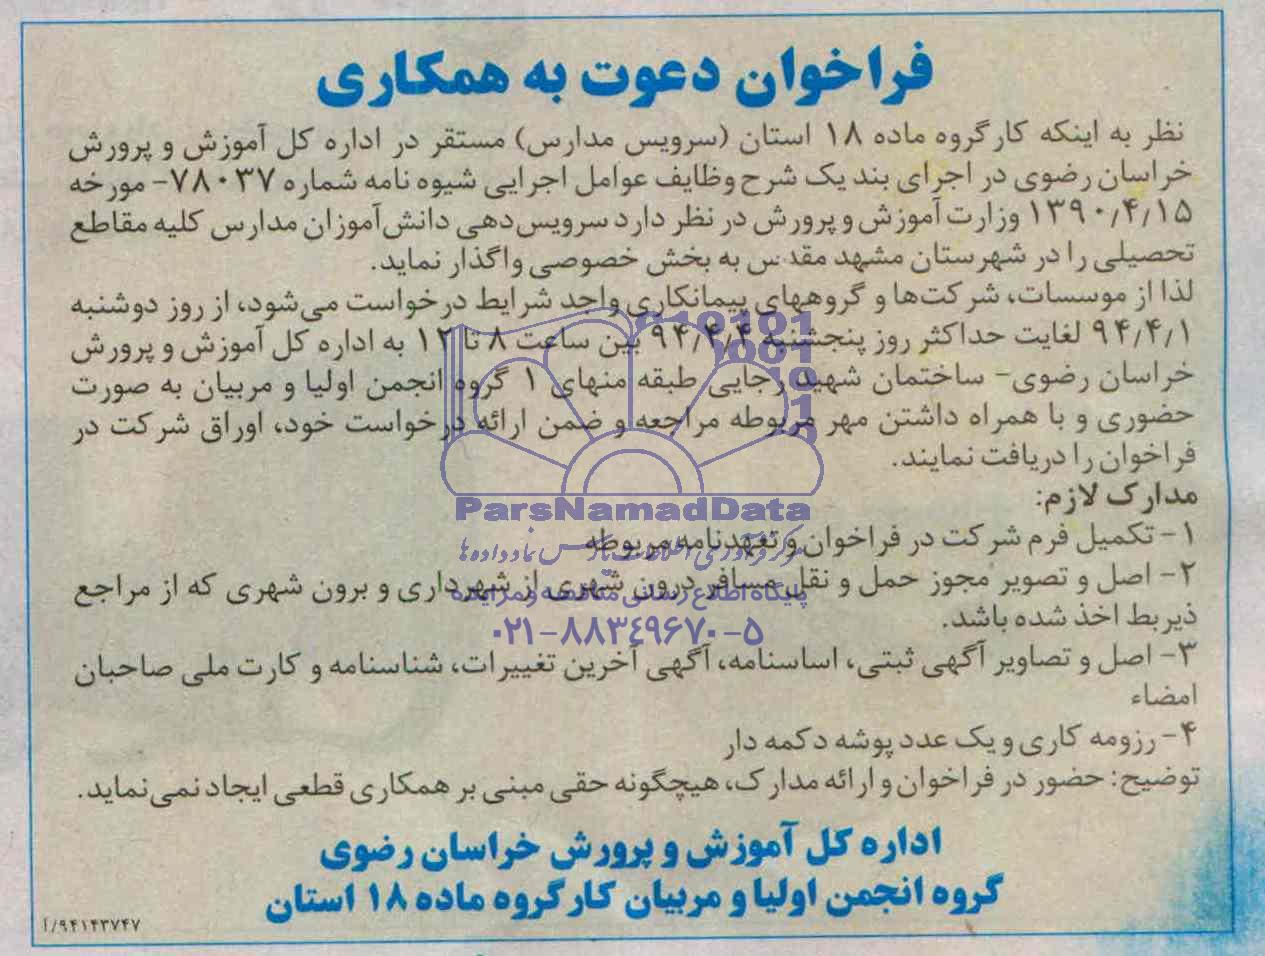 فراخوان دعوت به همکاری
نظر به اینکه کارگروه ماده ۱۸ استان (سرویس مدارس) مستقر در اداره کل آموزش و پرورش
خراسان رضوی در اجرای بند یک شرح وظایف عوامل اجرایی شیوه نامه شماره ۷۸۰۳۷- مورخه
۱۳۹۰/۴/۱۵ وزارت آموزش و پرورش در نظر دارد سرویس‌دهی دانش‌آموزان مدارس کلیه مقاطع
تحصیلی را در شهرستان مشهد مقدس به بخش خصوصی واگذار نماید.
لذا از موسسات، شرکت‌ها و گروههای پیمانکاری واجد شرایط درخواست می‌شود، از روز دوشنبه
۹۴/۴/۱ لغایت حداکثر روز پنجشنبه ۹۴/۴/۴ بین ساعت ۸ تا ۱۲ به اداره کل آموزش و پرورش
خراسان رضوی- ساختمان شهید رجایی طبقه منهای ۱ گروه انجمن اولیا و مربیان به صورت
حضوری و با همراه داشتن مهر مربوطه مراجعه و ضمن ارائه درخواست خود، اوراق شرکت در
فراخوان را دریافت نمایند.
ParsNamadData
مدارک لازم:
۱- تکمیل فرم شرکت در فراخوان و تعهدنامه مربوطه
مرکز فرآوری اطلاعات پارس نماد داده‌ها
۲- اصل و تصویر مجوز حمل و نقل مسافر درون شهری از شهرداری و برون شهری که از مراجع
پایگاه اطلاع رسانی مناقصه و مزایده
ذیربط اخذ شده باشد.
۰۲۱-۸۸۳۴۹۶۷۰-۵
۳- اصل و تصاویر آگهی ثبتی، اساسنامه، آگهی آخرین تغییرات، شناسنامه و کارت ملی صاحبان
امضاء
۴- رزومه کاری و یک عدد پوشه دکمه دار
توضیح: حضور در فراخوان و ارائه مدارک، هیچگونه حقی مبنی بر همکاری قطعی ایجاد نمی‌نماید.
اداره کل آموزش و پرورش خراسان رضوی
گروه انجمن اولیا و مربیان کارگروه ماده ۱۸ استان
۹۴۱۴۳۷۴۷/آ